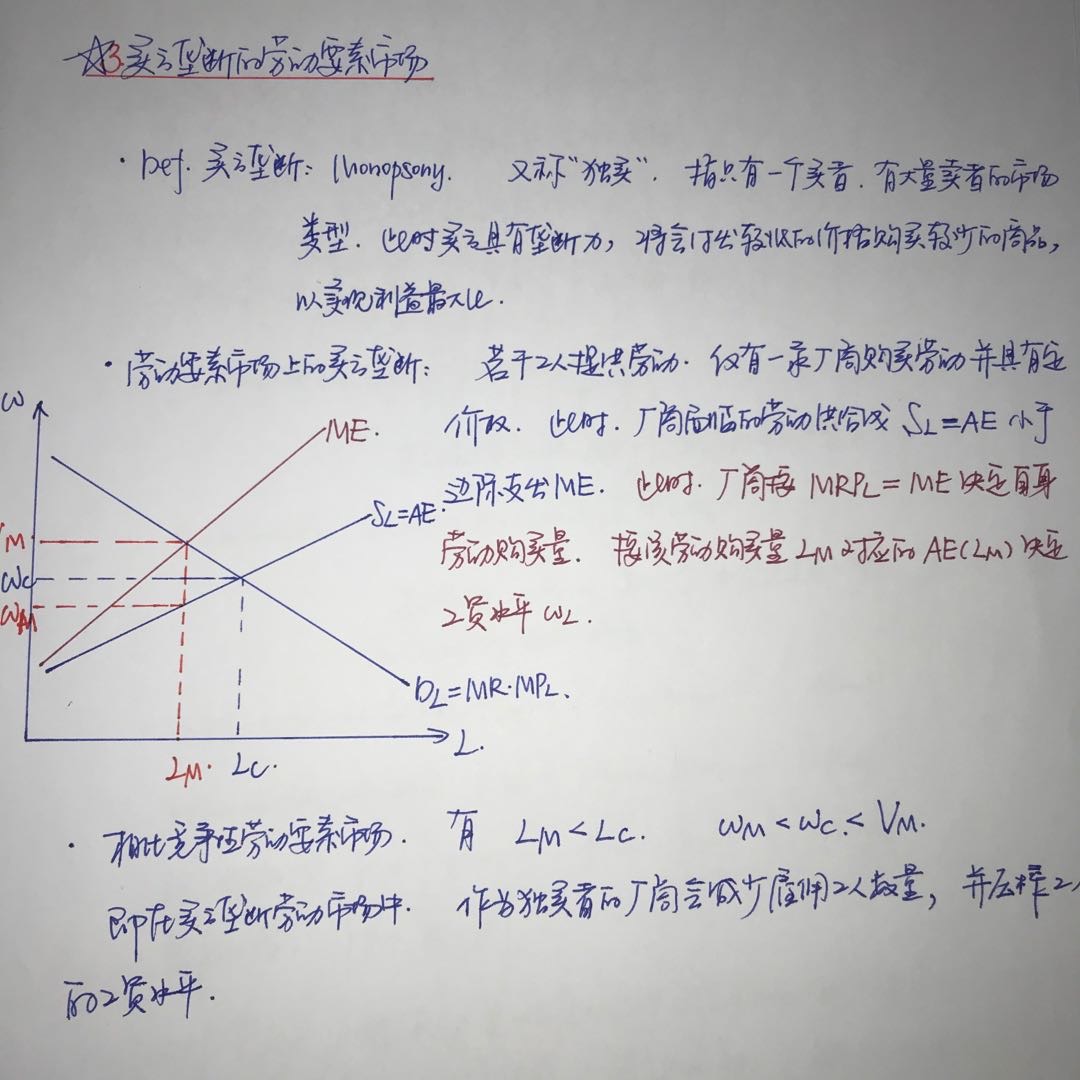 ☆3.买方垄断的劳动要素市场
· Def. 买方垄断: Monopsony. 又称"独买". 指只有一个买者. 有大量卖者的市场
类型. 此时买方具有垄断力, 将会付出较低的价格购买较少的商品,
以实现利益最大化.
· 劳动要素市场上的买方垄断: 若干工人提供劳动. 仅有一家厂商购买劳动并具有定
价权. 此时. 厂商面临的劳动供给线 SL=AE 小于
边际支出ME. 此时. 厂商按 MRPL=ME 决定自身
劳动购买量. 按该劳动购买量 LM 对应的 AE(LM) 决定
工资水平 ωL.
ω
ME.
SL=AE.
VM
ωc
ωM
DL=MR·MPL.
L.
LM. Lc.
· 相比竞争性劳动要素市场. 有 LM<Lc. ωM<ωc.<VM.
即在买方垄断劳动市场中. 作为独买者的厂商会减少雇佣工人数量, 并压榨工人
的工资水平.